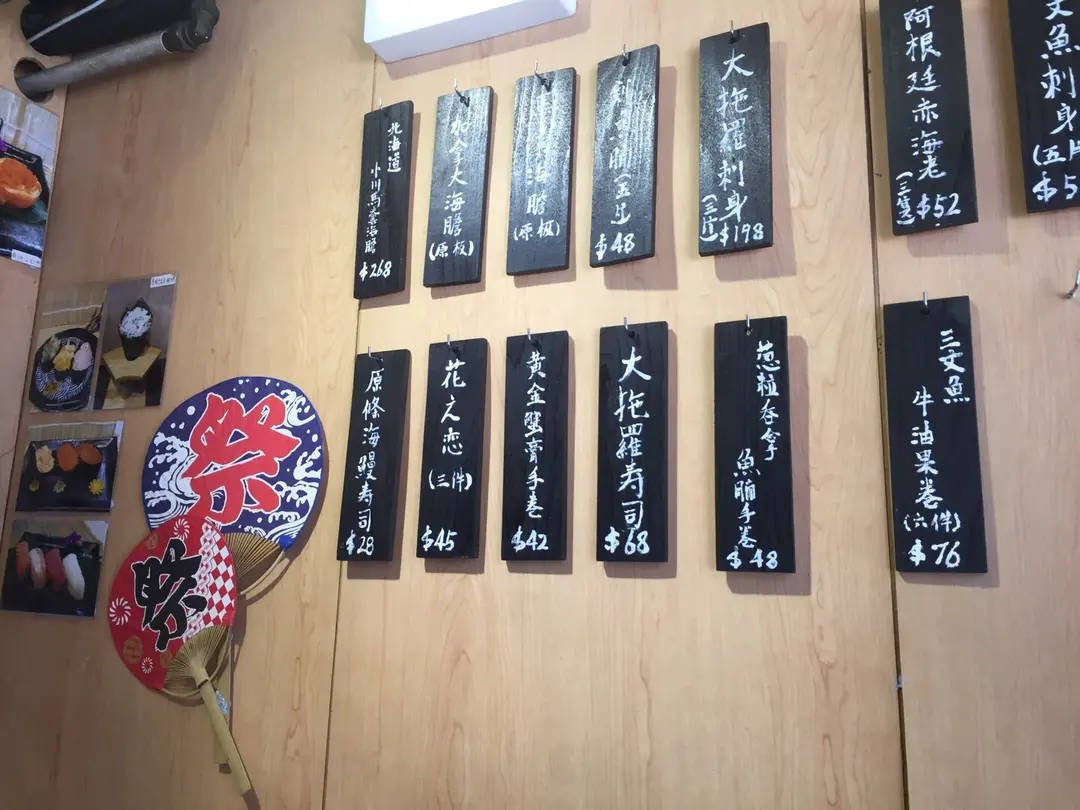 北海道
小川馬糞海膽
$268
加拿大海膽
(原板)
海膽
(原板)
$48
大拖羅刺身
(三片)
$198
阿根廷赤海老
(三隻)
$52
文魚刺身
(五片
$5
原條海鰻寿司
$28
花之恋
(三件)
$45
黄金蟹膏手巻
$42
大拖羅寿司
$68
葱粒吞拿
魚腩手巻
$48
三文魚
牛油果巻
(六件)
$76
祭
祭